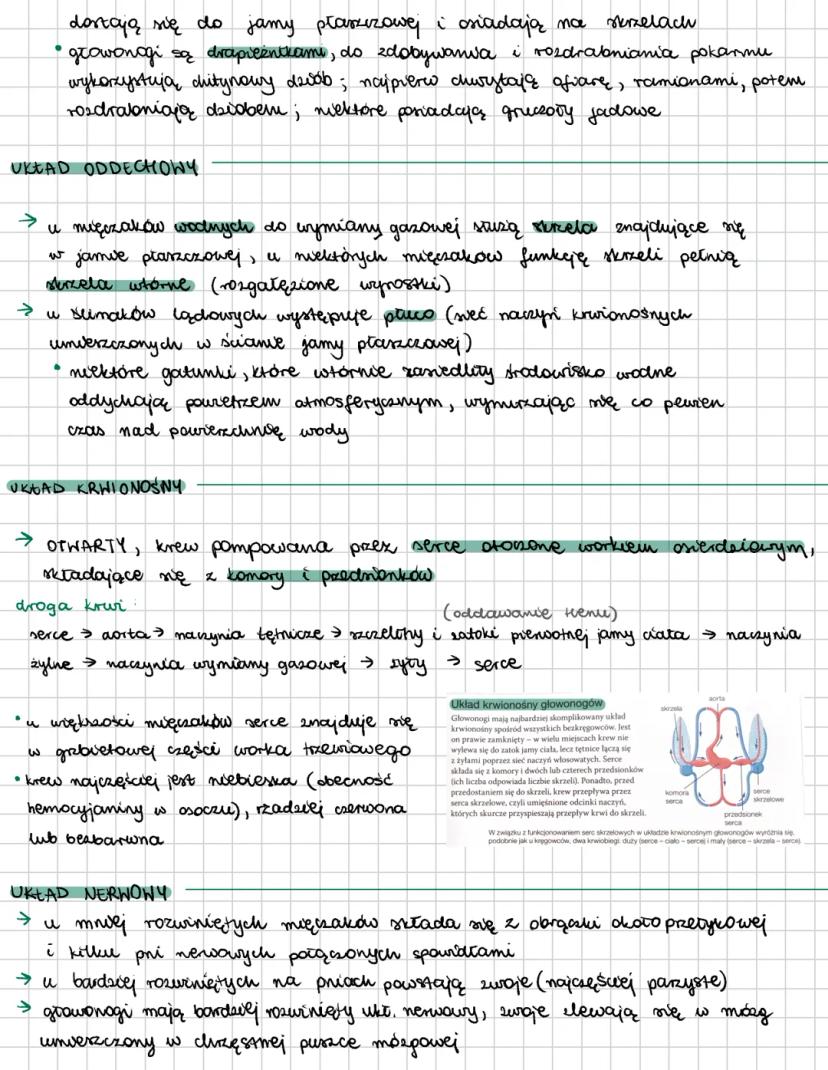 dostają się do jamy płaszczowej i osiadają na skrzelach
• głowonogi są drapieżnikami, do zdobywania i rozdrabniania pokarmu
wykorzystują chitynowy dziób; najpierw chwytają ofiarę, ramionami, potem
rozdrabniają dziobem; niektóre posiadają gruczoły jadowe
UKŁAD ODDECHOWY
→ u mięczaków wodnych do wymiany gazowej służą skrzela znajdujące się
w jamie płaszczowej, u niektórych mięczaków funkcję skrzeli pełnią
skrzela wtórne (rozgałęzione wyrostki)
→ u ślimaków lądowych występuje płuco (sieć naczyń krwionośnych
umieszczonych w ścianie jamy płaszczowej)
• niektóre gatunki, które wtórnie zasiedliły środowisko wodne
oddychają powietrzem atmosferycznym, wynurzając się co pewien
czas nad powierzchnię wody
UKŁAD KRWIONOŚNY
→ OTWARTY, krew pompowana przez serce otoczone workiem osierdziowym,
składające się z komory i przedsionków
droga krwi:
(oddawanie tlenu)
serce → aorta → naczynia tętnicze → szczeliny i zatoki pierwotnej jamy ciała → naczynia
żylne → naczynia wymiany gazowej → żyły → serce
• u większości mięczaków serce znajduje się
w grzbietowej części worka trzewiowego
• krew najczęściej jest niebieska (obecność
hemocyjaniny w osoczu), rzadziej czerwona
lub bezbarwna
Układ krwionośny głowonogów
Głowonogi mają najbardziej skomplikowany układ
krwionośny spośród wszystkich bezkręgowców. Jest
on prawie zamknięty – w wielu miejscach krew nie
wylewa się do zatok jamy ciała, lecz tętnice łączą się
z żyłami poprzez sieć naczyń włosowatych. Serce
składa się z komory i dwóch lub czterech przedsionków
(ich liczba odpowiada liczbie skrzeli). Ponadto, przed
przedostaniem się do skrzeli, krew przepływa przez
serca skrzelowe, czyli umięśnione odcinki naczyń,
których skurcze przyspieszają przepływ krwi do skrzeli.
aorta
skrzela
komora
serca
serce
skrzelowe
przedsionek
serca
W związku z funkcjonowaniem serc skrzelowych w układzie krwionośnym głowonogów wyróżnia się,
podobnie jak u kręgowców, dwa krwiobiegi: duży (serce – ciało – serce) i mały (serce – skrzela – serce).
UKŁAD NERWOWY
→ u mniej rozwiniętych mięczaków składa się z obrączki okołoprzełykowej
i kilku pni nerwowych połączonych spoidłami
→ u bardziej rozwiniętych na pniach powstają zwoje (najczęściej parzyste)
→ głowonogi mają bardziej rozwinięty ukł. nerwowy, zwoje zlewają się w mózg
umieszczony w chrzęstnej puszce mózgowej